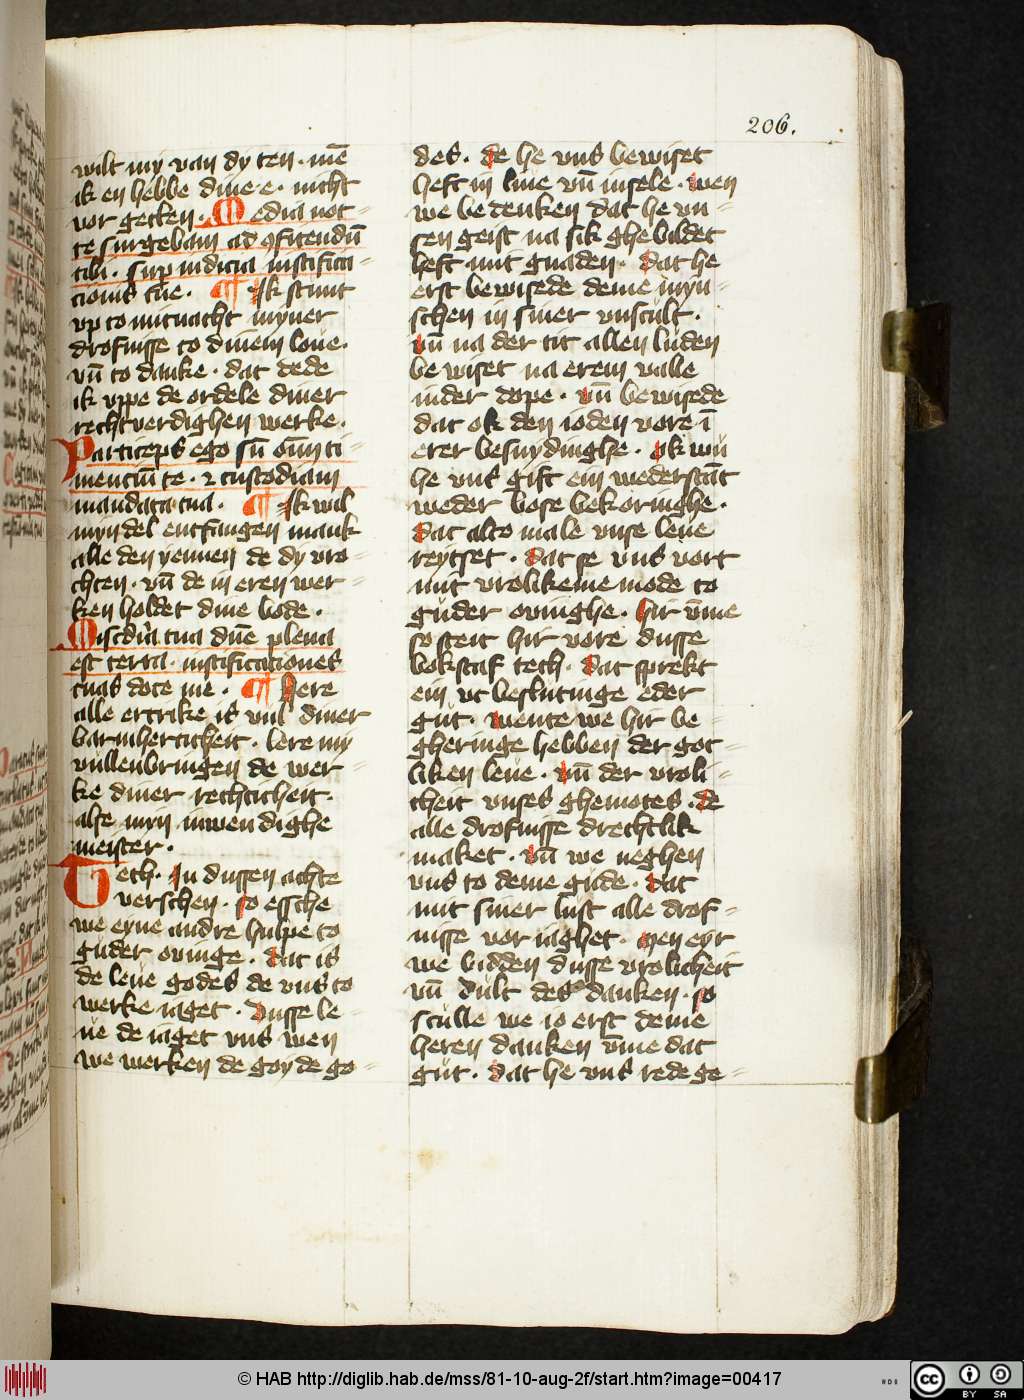 206.
wilt my van dy ten · mē
ik en hebbe dine e · nicht
vor geten · Media noc=
te surgebam ad ꝯfitendū
tibi · sup iudicia iustifica=
cionis tue · ¶ Ik stunt
vp to mitnacht myner
drofnisse to dinem loue ·
vn̄ to danke · dat dede
ik vppe de ordele diner
rechtverdighen werke ·
Particeps ego sū oīm ti=
menciū te · ⁊ custodiam
mandata tua · ¶ Ik wil
myn del entfangen mank
alle den yennen de dy vro=
chten · vn̄ de in eren wer=
ken holdet dine bode ·
Misc̄dia tua dn̄e plena
est terra · iustificationes
tuas doce me · ¶ Here
alle ertrike is vul diner
barmherticheit · lere my
vullenbringen de wer=
ke diner rechticheit ·
alse myn inwendighe
meister ·
Tech · In dussen achte
verschen · so essche
we eyne andre hulpe to
guder ouinge · dat is
de leue godes de vns to
werke iaget · dusse le=
ue de iaget vns wen
we werken de goyde go=
des · de he vns bewiset
heft in liue vn̄ in sele · wen
we bedenken dat he vn=
sen geist na sik ghebildet
heft mit gnaden · dat he
erst bewisede deme myn=
schen in siner vnscult ·
vn̄ na der tit allen luden
bewiset na erem valle
in der dope · vn̄ bewisede
dat ok den ioden vore ī
erer besnydinghe · ok wu
he vns gift ein wederstāt
weder bose bekoringhe ·
dat alto male vnse leue
reytset · dat se vns vort
mit vrolikeme mode to
guder ouinghe · hir vm̄e
so steit hir vore dusse
bokstaf tech · dat sprekt
ein vt beslutinge eder
gut · wente we hir be=
gheringe hebben der got=
liken leue · vn̄ der vroli=
cheit vnses ghemotes · de
alle drofnisse drechtlik
maket · vn̄ we neghen
vns to deme gude · dat
mit siner lust alle drof=
nisse vor iaghet · men eyr
we bidden dusse vrolicheit
vn̄ dult des danken · so
sculle we io erst deme
heren danken vm̄e dat
gut · dat he vns rede ge=
© HAB http://diglib.hab.de/mss/81-10-aug-2f/start.htm?image=00417
cc BY SA